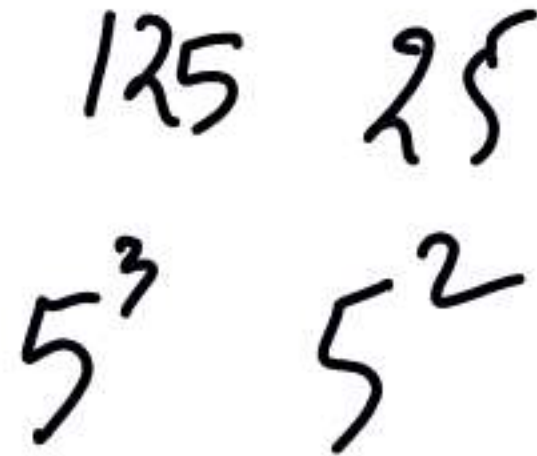 125 25
5³ 5²